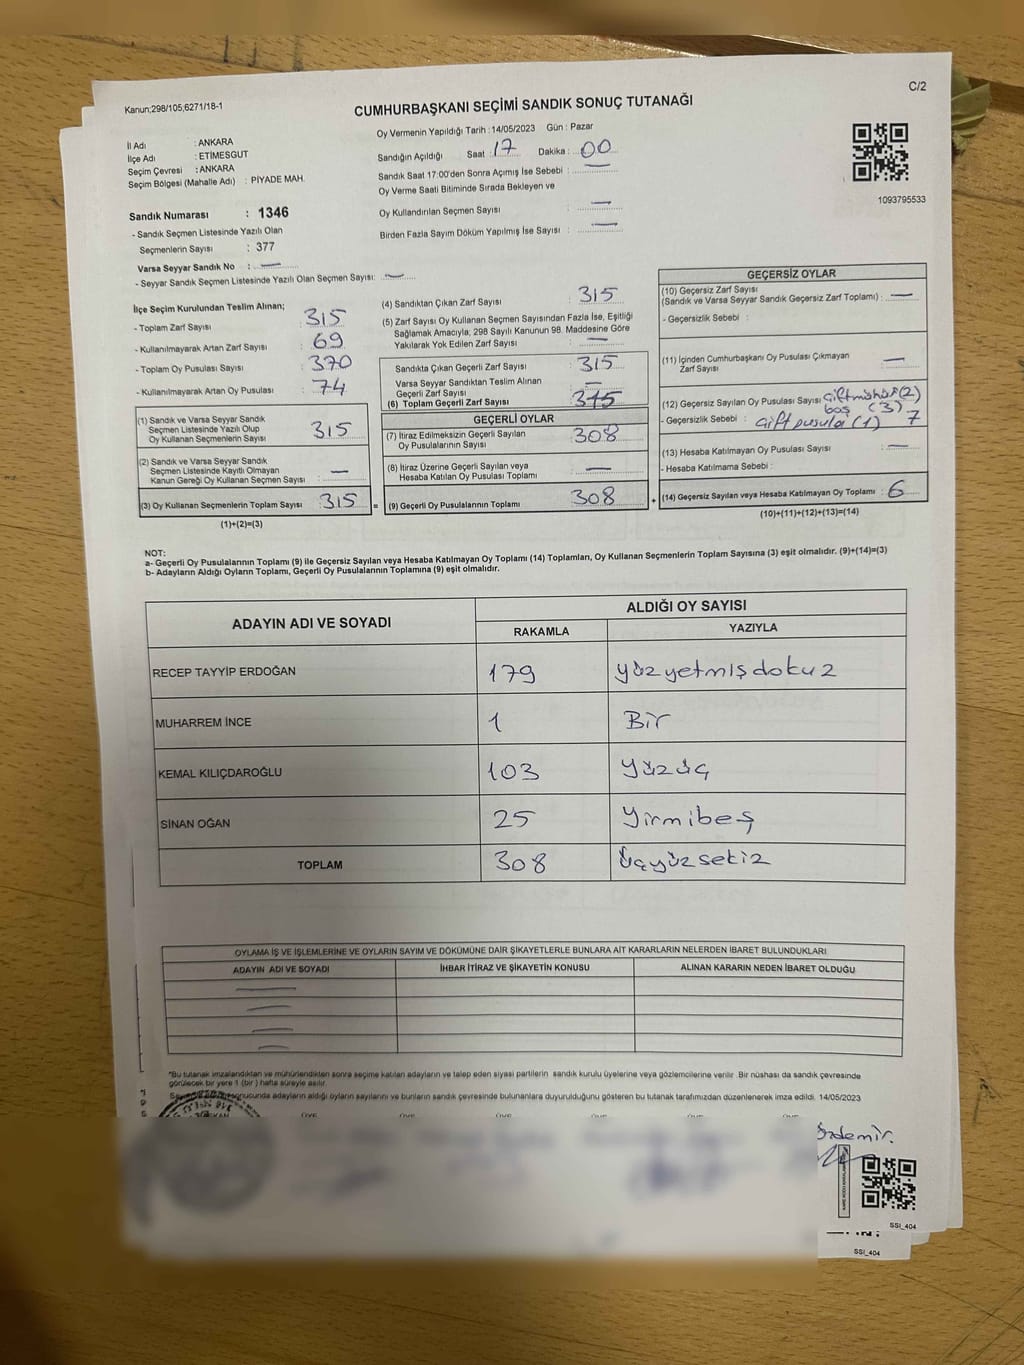 C/2
Kanun;298/105,6271/18-1
CUMHURBAŞKANI SEÇİMİ SANDIK SONUÇ TUTANAĞI
Oy Vermenin Yapıldığı Tarih : 14/05/2023 Gün : Pazar
İl Adı : ANKARA
İlçe Adı : ETİMESGUT
Seçim Çevresi : ANKARA
Seçim Bölgesi (Mahalle Adı) : PİYADE MAH.
Sandığın Açıldığı Saat : 17 Dakika : 00
Sandık Saat 17:00'den Sonra Açımış İse Sebebi : —
Oy Verme Saati Bitiminde Sırada Bekleyen ve
Oy Kullandırılan Seçmen Sayısı : —
Birden Fazla Sayım Döküm Yapılmış İse Sayısı : —
1093795533
Sandık Numarası : 1346
- Sandık Seçmen Listesinde Yazılı Olan
Seçmenlerin Sayısı : 377
Varsa Seyyar Sandık No : —
- Seyyar Sandık Seçmen Listesinde Yazılı Olan Seçmen Sayısı: —
İlçe Seçim Kurulundan Teslim Alınan;
- Toplam Zarf Sayısı 315
- Kullanılmayarak Artan Zarf Sayısı 69
- Toplam Oy Pusulası Sayısı 370
- Kullanılmayarak Artan Oy Pusulası 74
(1) Sandık ve Varsa Seyyar Sandık
Seçmen Listesinde Yazılı Olup
Oy Kullanan Seçmenlerin Sayısı 315
(2) Sandık ve Varsa Seyyar Sandık
Seçmen Listesinde Kayıtlı Olmayan
Kanun Gereği Oy Kullanan Seçmen Sayısı : —
(3) Oy Kullanan Seçmenlerin Toplam Sayısı 315 =
(1)+(2)=(3)
(4) Sandıktan Çıkan Zarf Sayısı 315
(5) Zarf Sayısı Oy Kullanan Seçmen Sayısından Fazla İse, Eşitliği
Sağlamak Amacıyla, 298 Sayılı Kanunun 98. Maddesine Göre
Yakılarak Yok Edilen Zarf Sayısı : —
Sandıkta Çıkan Geçerli Zarf Sayısı 315
Varsa Seyyar Sandıktan Teslim Alınan
Geçerli Zarf Sayısı : —
(6) Toplam Geçerli Zarf Sayısı 315
GEÇERLİ OYLAR
(7) İtiraz Edilmeksizin Geçerli Sayılan
Oy Pusulalarının Sayısı : 308
(8) İtiraz Üzerine Geçerli Sayılan veya
Hesaba Katılan Oy Pusulası Toplamı : —
(9) Geçerli Oy Pusulalarının Toplamı 308 +
GEÇERSİZ OYLAR
(10) Geçersiz Zarf Sayısı
(Sandık ve Varsa Seyyar Sandık Geçersiz Zarf Toplamı) : —
- Geçersizlik Sebebi :
(11) İçinden Cumhurbaşkanı Oy Pusulası Çıkmayan
Zarf Sayısı : —
(12) Geçersiz Sayılan Oy Pusulası Sayısı Çiftmühür (2)
boş (3)
- Geçersizlik Sebebi : Çift pusula (1) 7
(13) Hesaba Katılmayan Oy Pusulası Sayısı : —
- Hesaba Katılmama Sebebi :
(14) Geçersiz Sayılan veya Hesaba Katılmayan Oy Toplamı : 6
(10)+(11)+(12)+(13)=(14)
NOT:
a- Geçerli Oy Pusulalarının Toplamı (9) ile Geçersiz Sayılan veya Hesaba Katılmayan Oy Toplamı (14) Toplamları, Oy Kullanan Seçmenlerin Toplam Sayısına (3) eşit olmalıdır. (9)+(14)=(3)
b- Adayların Aldığı Oyların Toplamı, Geçerli Oy Pusulalarının Toplamına (9) eşit olmalıdır.
ADAYIN ADI VE SOYADI
ALDIĞI OY SAYISI
RAKAMLA YAZIYLA
RECEP TAYYİP ERDOĞAN 179 yüzyetmişdokuz
MUHARREM İNCE 1 Bir
KEMAL KILIÇDAROĞLU 103 yüzüç
SİNAN OĞAN 25 Yirmibeş
TOPLAM 308 üçyüzsekiz
OYLAMA İŞ VE İŞLEMLERİNE VE OYLARIN SAYIM VE DÖKÜMÜNE DAİR ŞİKAYETLERLE BUNLARA AİT KARARLARIN NELERDEN İBARET BULUNDUKLARI
ADAYIN ADI VE SOYADI İHBAR İTİRAZ VE ŞİKAYETİN KONUSU ALINAN KARARIN NEDEN İBARET OLDUĞU
—
—
—
—
*Bu tutanak imzalandıktan ve mühürlendikten sonra seçime katılan adayların ve talep eden siyasi partilerin sandık kurulu üyelerine veya gözlemcilerine verilir. Bir nüshası da sandık çevresinde
görülecek bir yere 1 (bir) hafta süreyle asılır.
sonucunda adayların aldığı oyların sayılarını ve bunların sandık çevresinde bulunanlara duyurulduğunu gösteren bu tutanak tarafımızdan düzenlenerek imza edildi. 14/05/2023
ÜYE ÜYE ÜYE ÜYE ÜYE
Özdemir.
SSI_404
SSI_404